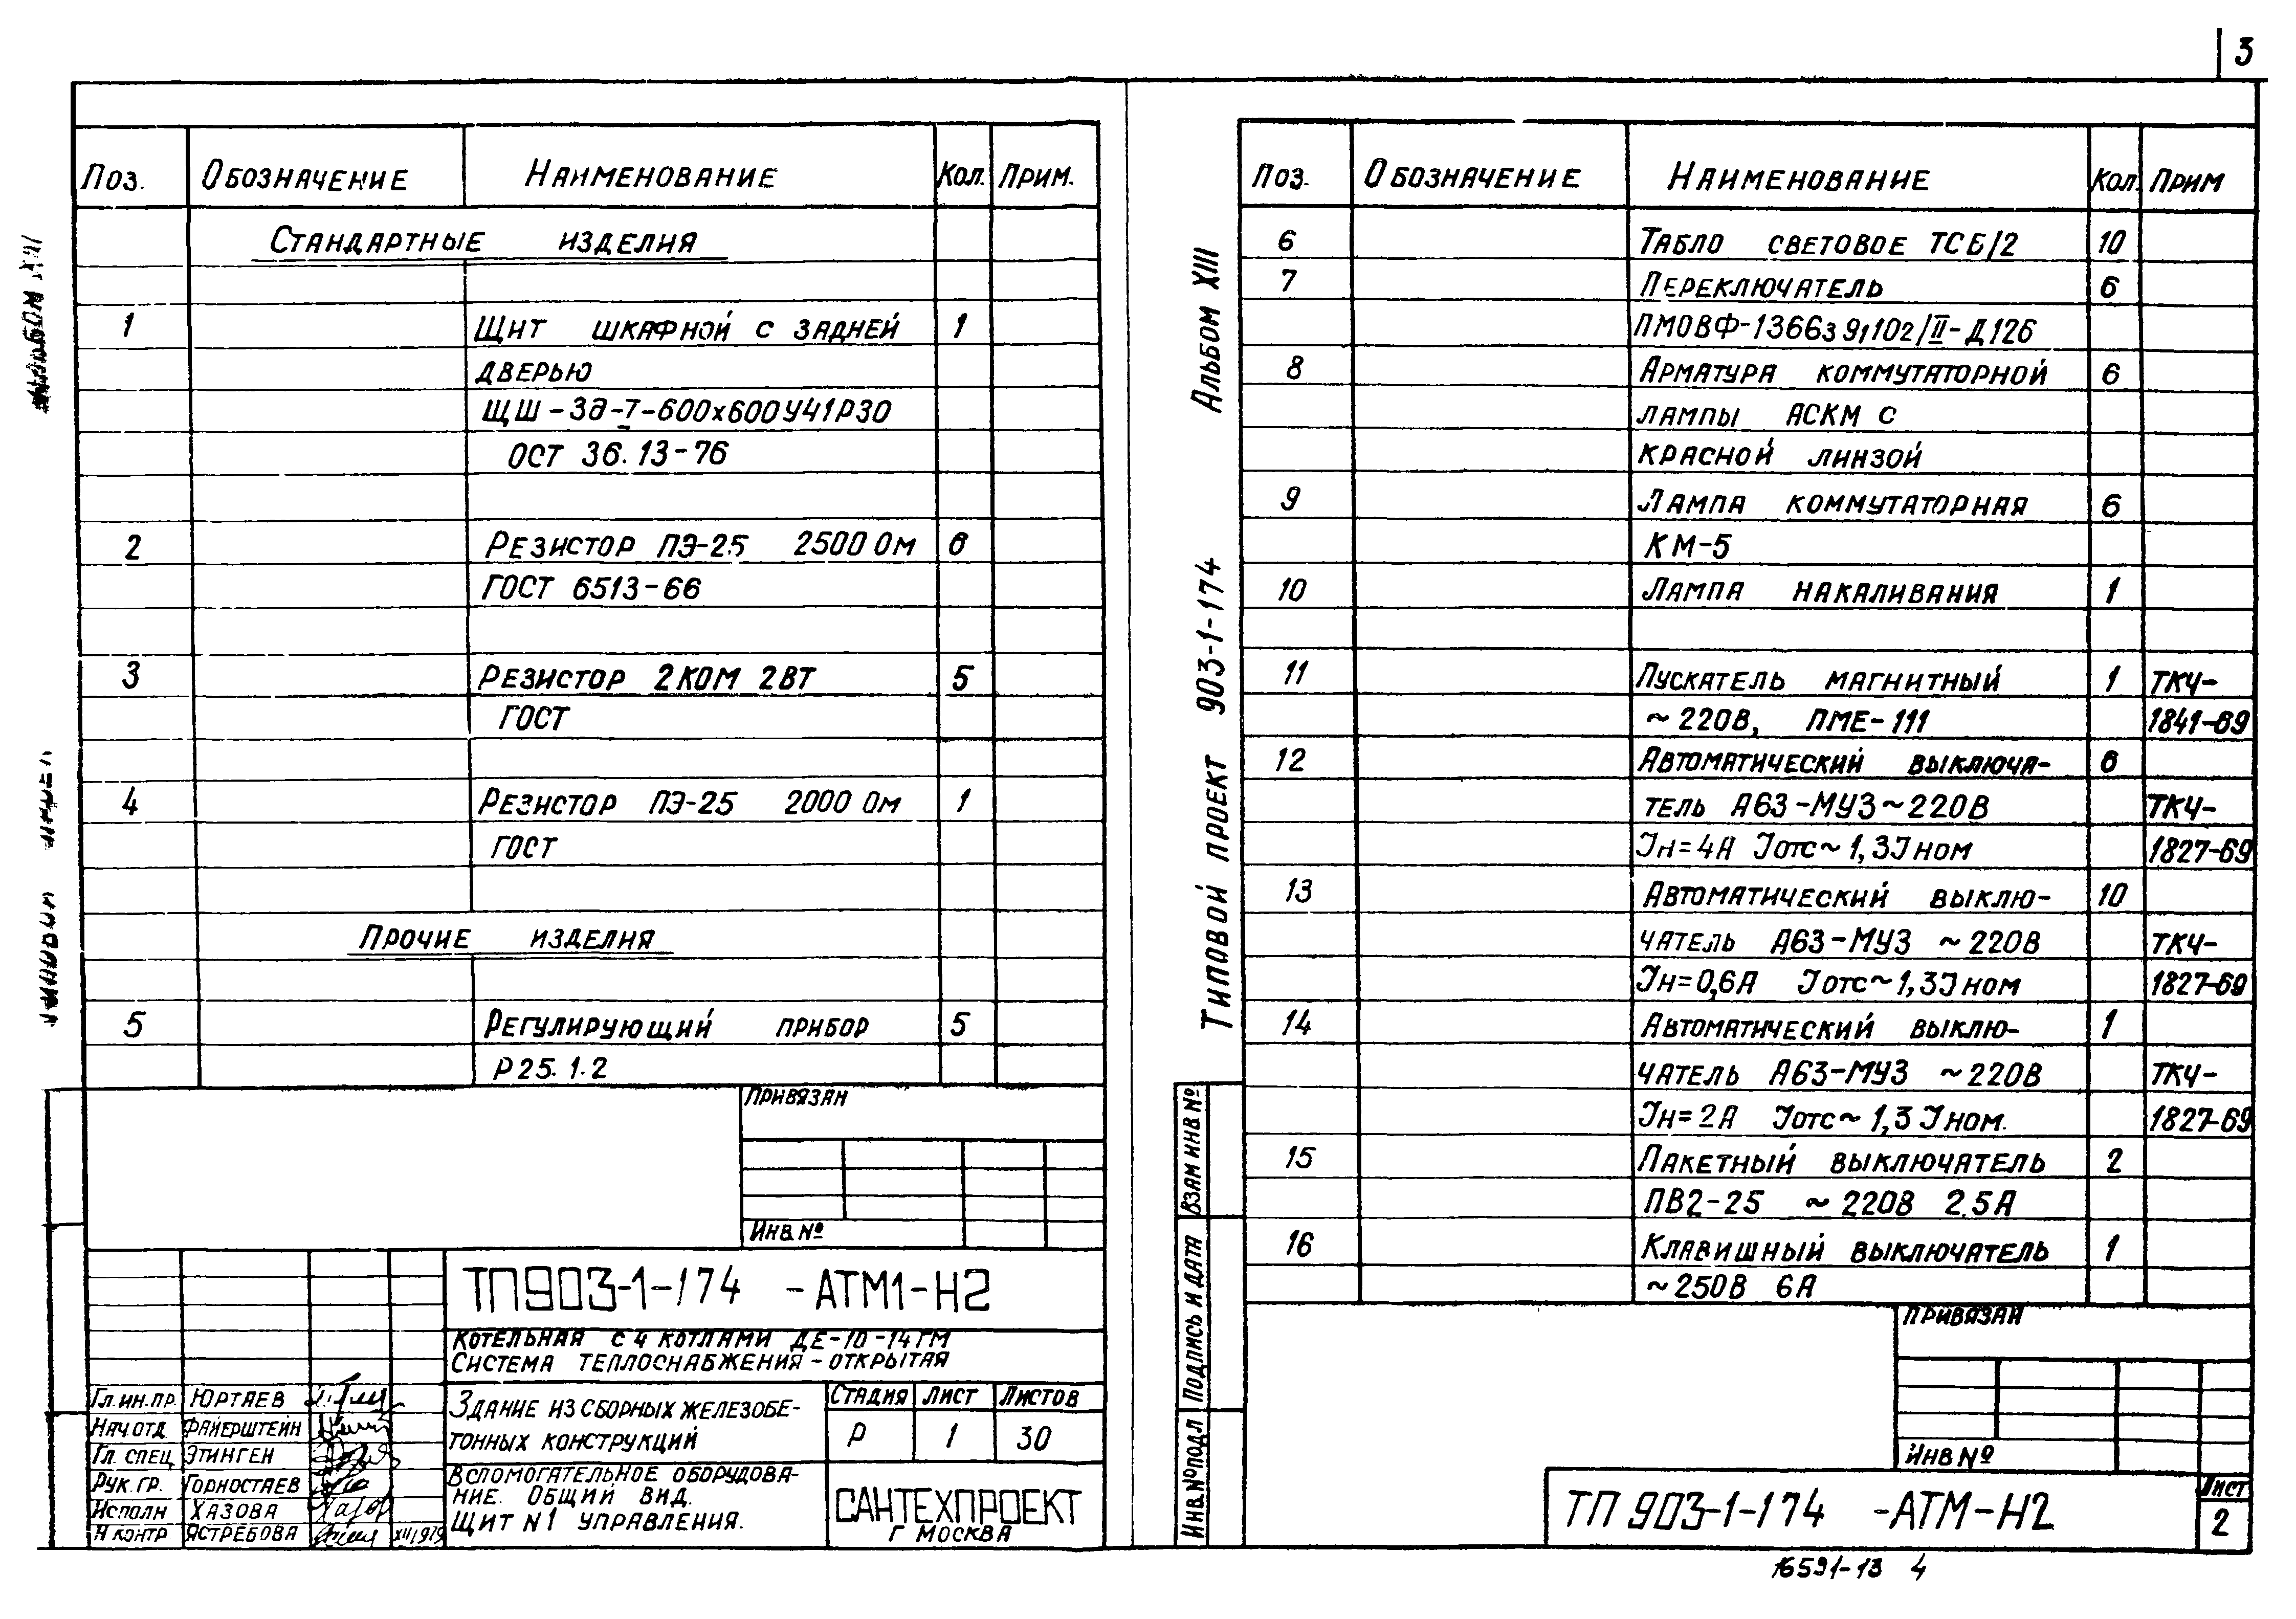 3
Поз. Обозначение Наименование Кол. Прим.
Стандартные изделия
1 Щит шкафной с задней 1
дверью
ЩШ-3д-I-600х600У41Р30
ОСТ 36.13-76
2 Резистор ПЭ-25 2500 Ом 6
ГОСТ 6513-66
3 Резистор 2ком 2вт 5
ГОСТ
4 Резистор ПЭ-25 2000 Ом 1
ГОСТ
Прочие изделия
5 Регулирующий прибор 5
Р25.1.2
Привязан
Инв.№
ТП903-1-174 -АТМ1-Н2
Котельная с 4 котлами ДЕ-10-14ГМ
Система теплоснабжения-открытая
Гл.ин.пр. Юртаев
Нач.отд Файерштейн
Гл. спец Этинген
Рук. гр. Горностаев
Исполн Хазова
Н контр Ястребова XII 1979
Здание из сборных железобе-
тонных конструкций
Стадия Лист Листов
Р 1 30
Вспомогательное оборудова-
ние. Общий вид.
Щит N1 управления.
САНТЕХПРОЕКТ
г Москва
Типовой проект 903-1-174 Альбом XIII
Взам инв №
Подпись и дата
Инв.№подл
Поз. Обозначение Наименование Кол. Прим
6 Табло световое ТСБ/2 10
7 Переключатель 6
ПМОВФ-1366з 9,102/II-Д126
8 Арматура коммутаторной 6
лампы АСКМ с
красной линзой
9 Лампа коммутаторная 6
КМ-5
10 Лампа накаливания 1
11 Пускатель магнитный 1 ТКЧ-
~220В, ПМЕ-111 1841-69
12 Автоматический выключа- 6
тель А63-МУ3~220В ТКЧ-
Iн=4А Iотс~1,3Iном 1827-69
13 Автоматический выклю- 10
чатель А63-МУ3 ~220В ТКЧ-
Iн=0,6А Iотс~1,3Iном 1827-69
14 Автоматический выклю- 1
чатель А63-МУ3 ~220В ТКЧ-
Iн=2А Iотс~1,3Iном. 1827-69
15 Пакетный выключатель 2
ПВ2-25 ~220В 2.5А
16 Клавишный выключатель 1
~250В 6А
Привязан
Инв №
ТП 903-1-174 -АТМ-Н2
Лист
2
16591-13 4